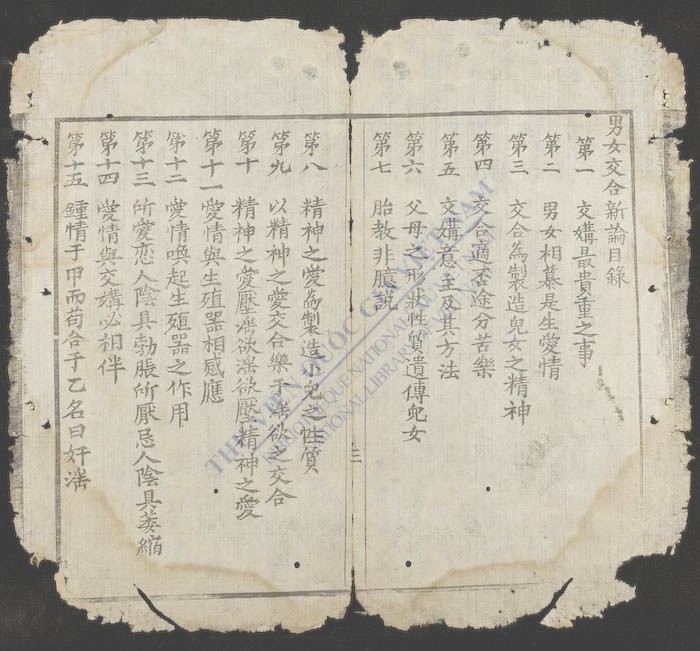 男女交合新論目錄
第一 交媾最貴重之事
第二 男女相慕是生愛情
第三 交合為製造兒女之精神
第四 交合適否途分苦樂
第五 交媾意主及其方法
第六 父母之形狀性質遺傳兒女
第七 胎教非臆說
三
第八 精神之愛為製造小兒之性質
第九 以精神之愛交合樂于淫欲之交合
第十 精神之愛壓淫欲淫欲壓精神之愛
第十一 愛情與生殖器相感應
第十二 愛情喚起生殖器之作用
第十三 所愛恋人陰具勃脹所厭忌人陰具萎縮
第十四 愛情與交媾必相伴
第十五 鍾情于甲而苟合于乙名曰奸淫
THƯ VIỆN QUỐC GIA VIỆT NAM
BIBLIOTHÈQUE NATIONALE DU VIETNAM
NATIONAL LIBRARY OF VIETNAM